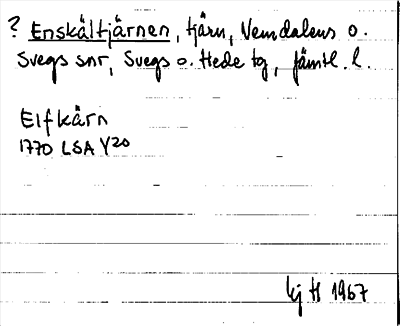 ? Enskältjärnen, tjärn, Vemdalens o.
Svegs snr, Svegs o. Hede tg, Jämtl. l.
Elfkärn
1770 LSA Y20
kj H 1967